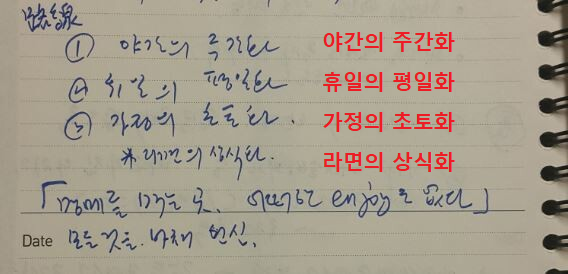 路線
① 야간의 주간화 야간의 주간화
② 휴일의 평일화 휴일의 평일화
③ 가정의 초토화. 가정의 초토화
※ 라면의 상식화. 라면의 상식화
「명예를 먹는 곳, 어떠한 enjoy도 없다」
Date 모든 것을 바쳐 헌신.